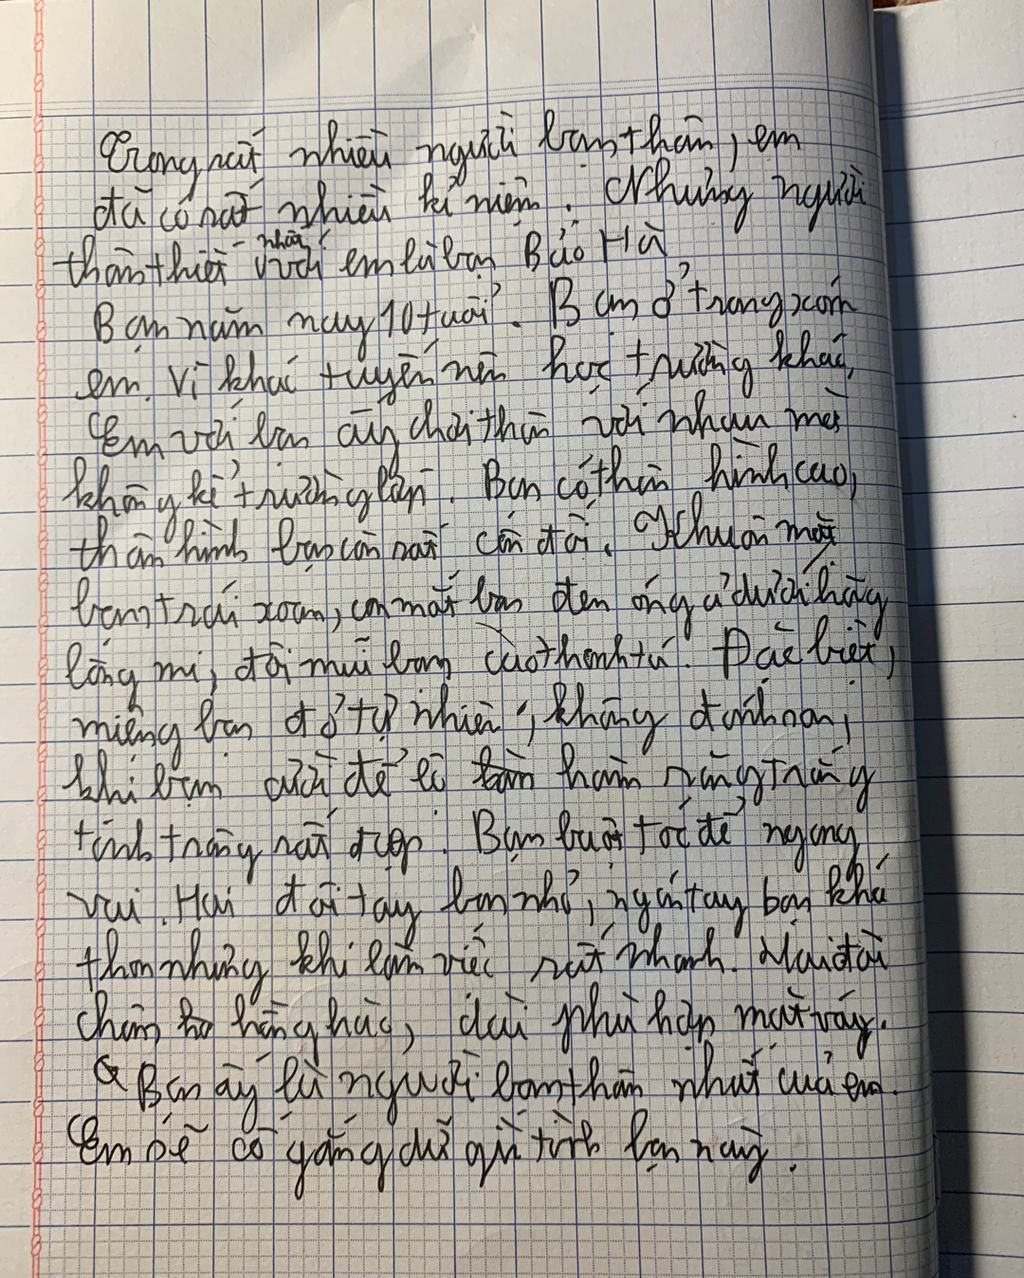 Trong rất nhiều người bạn thân, em
đã có rất nhiều kỉ niệm. Nhưng người
thân thiết nhất với em là bạn Bảo Hà
Bạn năm nay 10 tuổi. Bạn ở trong xóm
em. Vì khác tuyến nên học trường khác,
Em với bạn ấy chơi thân với nhau mặc
không kể trường lớp. Bạn có thân hình cao,
thân hình bạn cân rất cân đối. Khuôn mặt
bạn trái xoan, con mắt bạn đen óng ả dưới hàng
lông mi, đôi mũi bạn cao thanh tú. Đặc biệt,
miệng bạn đỏ tự nhiên, không đánh son,
khi bạn cười để lộ hàm răng trắng
tinh trông rất đẹp. Bạn buột tóc để ngang
vai. Hai đôi tay bạn nhỏ, ngón tay bạn khá
thon nhưng khi làm việc rất nhanh. Hai đôi
chân hồng hào, dài phù hợp mặt váy.
Bạn ấy là người bạn thân nhất của em.
Em sẽ cố gắng dữ gìn tình bạn này.